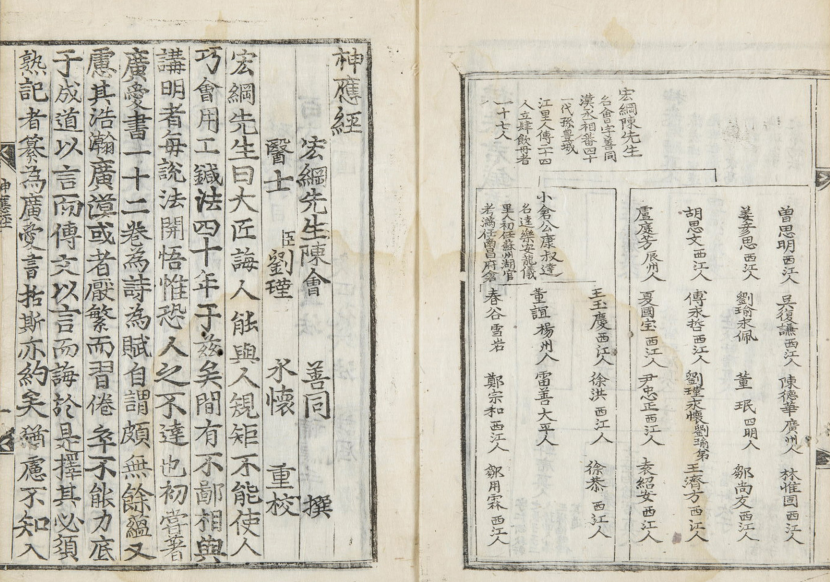 宏綱陳先生
名會字善同
漢丞相番四十
一代孫豊城
江里人傳二十四
人立婢飲丹者
一十七人
曽思明西江人 吳復謙西江人 陳德華廣州人 林惟囯西江人
姜彦思西江人 劉瑜永佩 董珉四明人 鄒尚友西江人
胡思文西江人 傅永哲西江人 劉瑾永懷劉瑜弟 王濟方西江人
盧庭芳辰州人 夏國宝西江人 尹忠正西江人 袁紹安西江人
王玉慶西江人 徐洪西江人 徐恭西江人
小倉公康叔達
名達樂安龍儀
里人初任蘇州湖官
考滿任南昌府倉
董誼楊州人 雷善大平人
春谷雪岩 鄭宗和西江人 鄒用霖西江人
神應經
宏綱先生陳會 善同 撰
醫士臣劉瑾 永懷 重校
宏綱先生曰大匠誨人能與人䂓矩不能使人
巧會用工鍼法四十年于兹矣間有不鄙相與
講明者毎說法開悟惟恐人之不達也初甞著
廣愛書一十二卷為詩為賦自謂頗無餘蘊又
慮其浩瀚廣漠或者厭繁而習倦卒不能力底
于成道以言而傳文以言而誨於是擇其必須
熟記者纂為廣愛書括斯亦約矣猶慮不知入
神應經
一